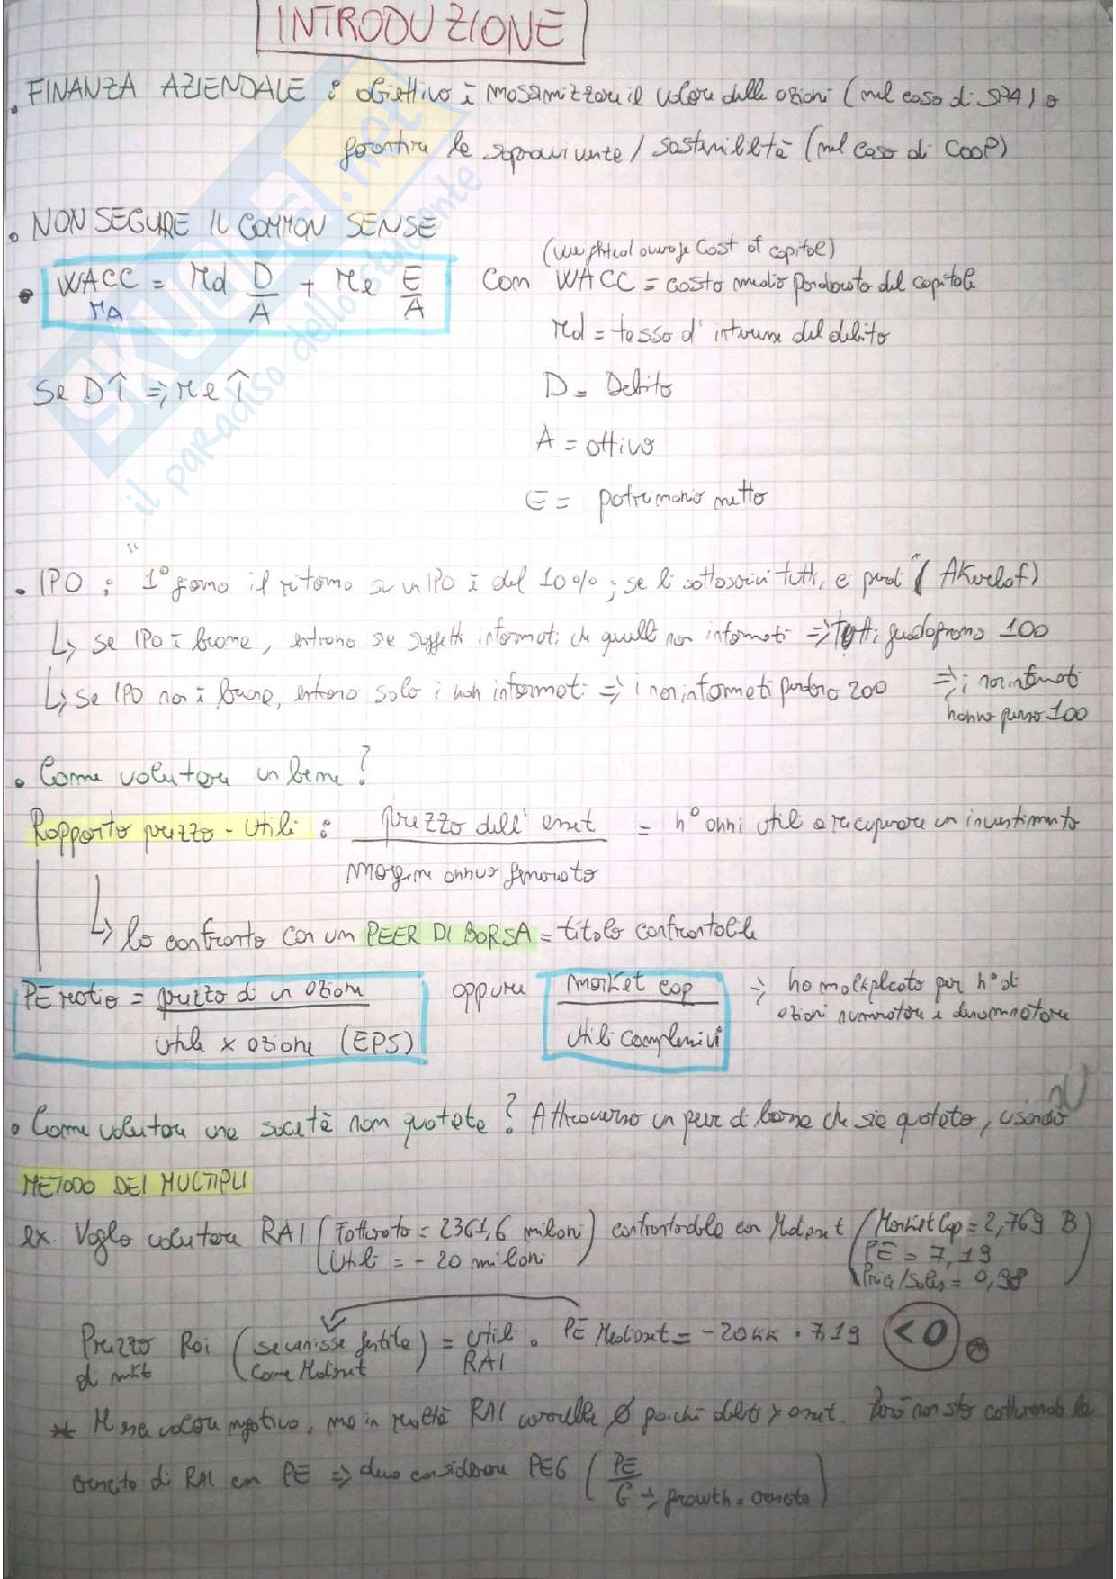 INTRODUZIONE
• FINANZA AZIENDALE : obiettivo è massimizzare il valore delle azioni (nel caso di SPA) o
garantire la sopravvivenza / sostenibilità (nel caso di COOP)
• NON SEGUIRE IL COMMON SENSE
(weighted average cost of capital)
• WACC = rd D/A + re E/A Con WACC = costo medio ponderato del capitale
rA
rd = tasso d'interesse del debito
Se D↑ => re↑ D = Debito
A = attivo
E = patrimonio netto
• IPO : 1° giorno il ritorno su un IPO è del 10%; se li sottoscrivi tutti, e perdi (Akerlof)
↳ se IPO è buona, entrano sia soggetti informati che quelli non informati => tutti guadagnano 100
↳ se IPO non è buona, entrano solo i non informati => i non informati perdono 200 => i non informati
hanno perso 100
• Come valutare un bene?
Rapporto prezzo - utili : prezzo dell'asset / margine annuo generato = n° anni utili a recuperare un investimento
↳ lo confronto con un PEER DI BORSA = titolo confrontabile
PE ratio = prezzo di un azione / utile x azione (EPS) oppure market cap / utili complessivi => ho moltiplicato per n° di
azioni numeratore e denominatore
• Come valutare una società non quotata? Attraverso un peer di borsa che sia quotato, usando
METODO DEI MULTIPLI
ex Voglio valutare RAI (Fatturato = 2361,6 milioni) confrontandola con Mediaset (Market Cap = 2,769 B
Utili = - 20 milioni PE = 7,19
Price/Sales = 0,98)
Prezzo Rai (se venisse gestita) = utili • PE Mediaset = -20 kk • 7,19 < 0
di mkt come Mediaset RAI
* Mi sa valore negativo, ma in realtà RAI varrebbe Ø poiché debito > asset. Però non sto catturando la
crescita di RAI con PE => devo considerare PEG (PE / G → growth = crescita)
SKUOLA.net
il paradiso dello studente